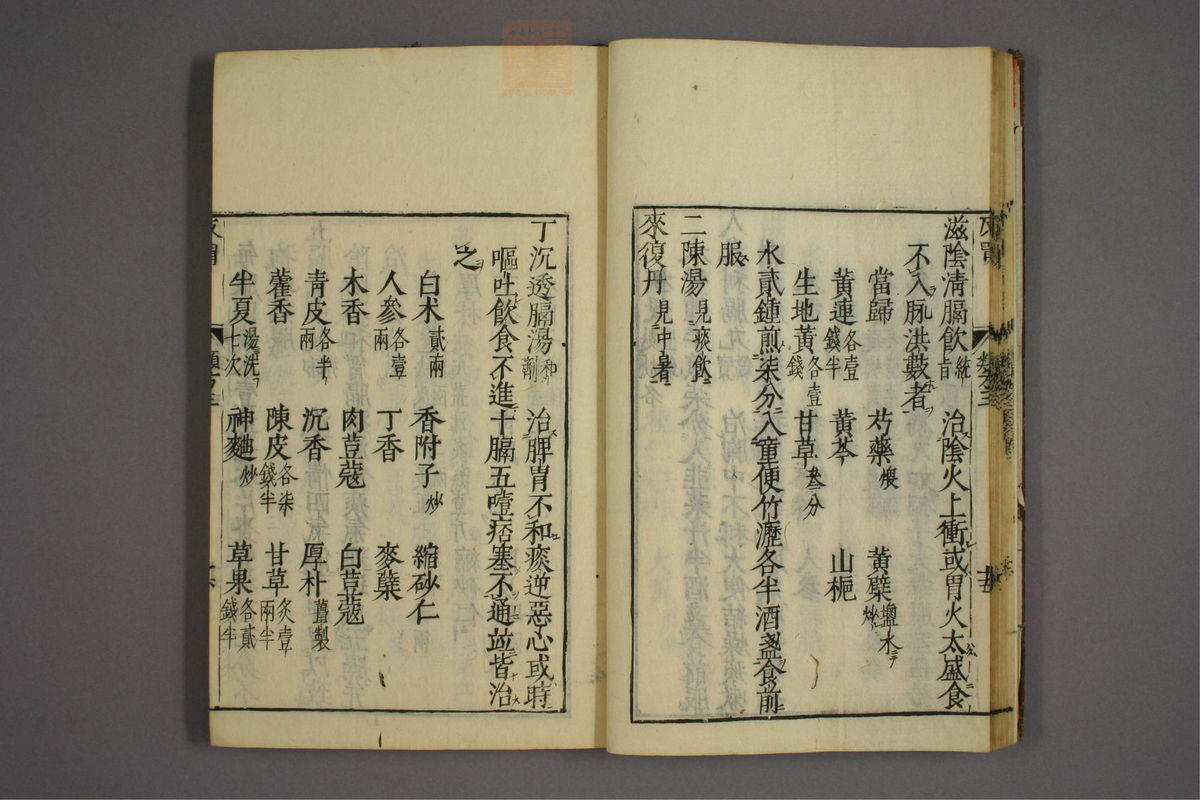 滋陰清膈飲 統旨 治陰火上衝或胃火太盛食
不入脉洪數者
當歸 芍藥煨 黃蘗鹽水炒
黃連各壹錢半 黃芩 山梔
生地黃各壹錢 甘草叁分
水貳鍾煎柒分入童便竹瀝各半酒盞食前
服
二陳湯見痰飲
來復丹見中暑
丁沉透膈湯和劑 治脾胃不和痰逆惡心或時
嘔吐飲食不進十膈五噎痞塞不通竝皆治
之
白术貳兩 香附子炒 縮砂仁
人參各壹兩 丁香 麥蘗
木香 肉荳蔻 白荳蔻
青皮各半兩 沉香 厚朴薑製
藿香 陳皮各柒錢半 甘草炙壹兩半
半夏湯洗七次 神麯炒 草果各貳錢半